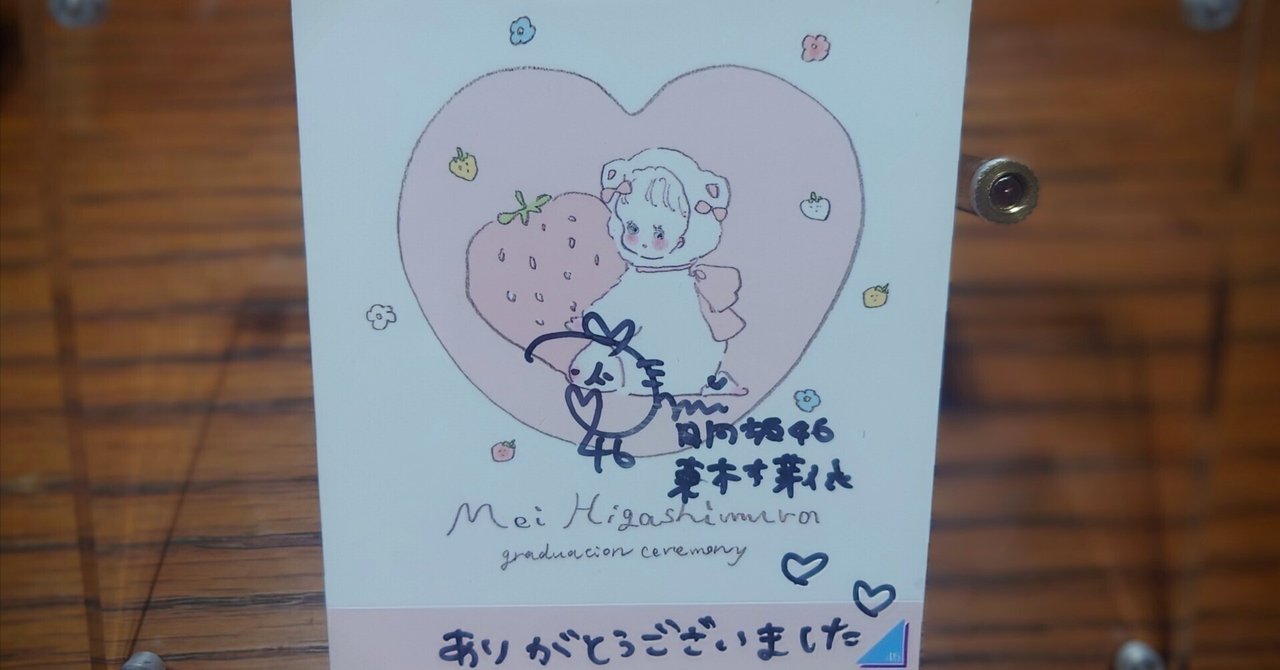 46
日向坂46
東村芽依
Mei Higashimura
graduation ceremony
ありがとうございました